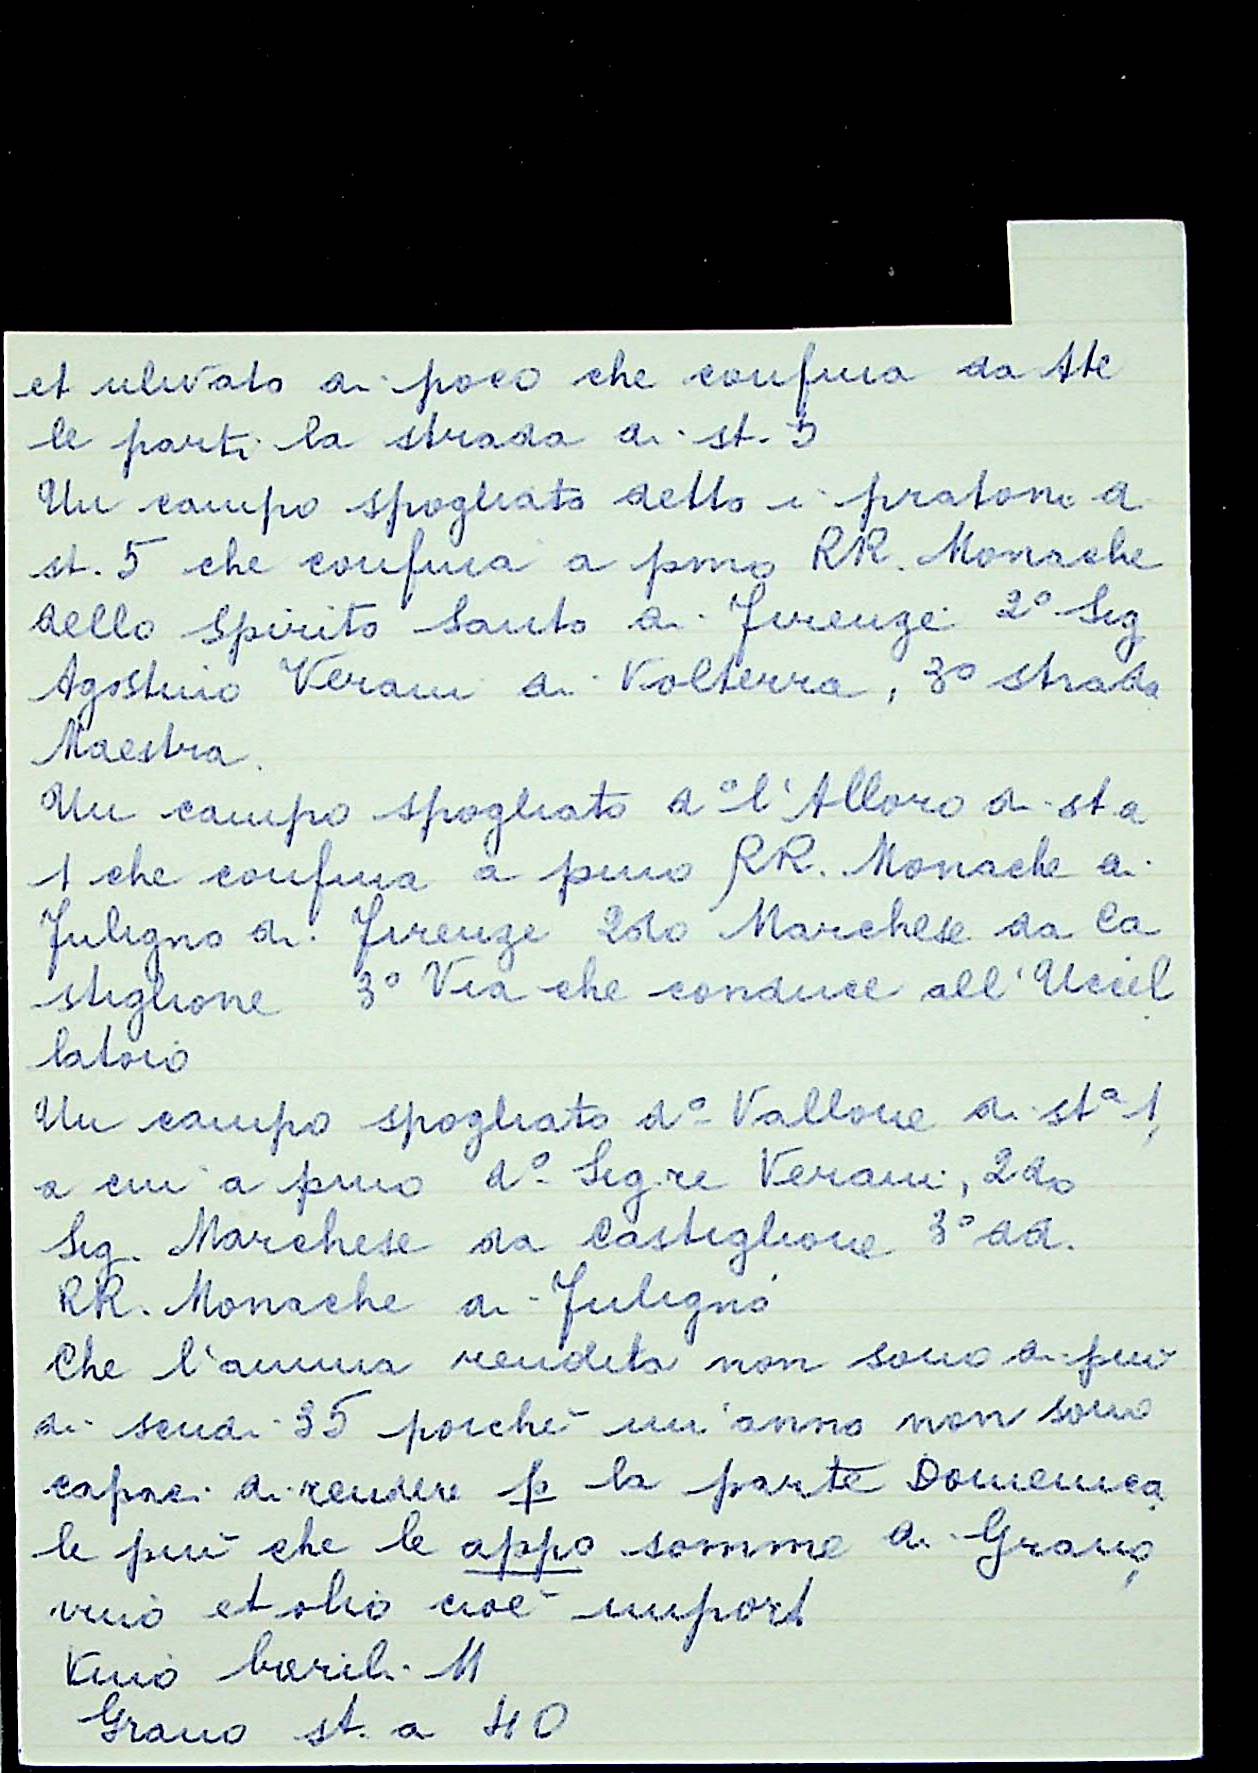 et ulivato di poco che confina da tte
le parti la strada di st. 3
Un campo spogliato detto i pratoni di
st. 5 che confina a pmo RR. Monache
dello Spirito Santo di Firenze 2° Sig
Agostino Verani di Volterra, 3° strada
Maestra.
Un campo spogliato d° l'Alloro di sta
1 che confina a primo RR. Monache di
Fuligno di Firenze 2do Marchese da Ca
stiglione 3° Via che conduce all'Uccel
latoio
Un campo spogliato d° Vallone di sta 1,
a cui a primo d° Sig.re Verani, 2do
Sig. Marchese da Castiglione 3° dd.
RR. Monache di Fuligno
Che l'annua rendita non sono di più
di scudi 35 poiché un'anno non sono
capaci di rendere p la parte Domenica
le più che le appo somme di Grano,
vino et olio cioè import
Vino barili 11
Grano st. a 40